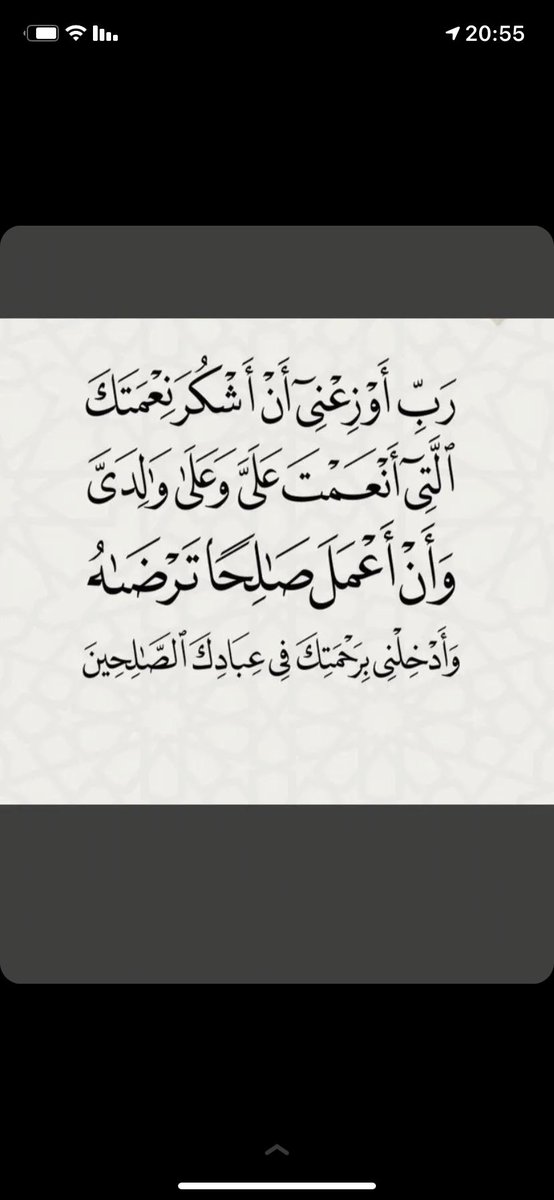 20:55
رَبِّ أَوۡزِعۡنِىٓ أَنۡ أَشۡكُرَ نِعۡمَتَكَ
ٱلَّتِىٓ أَنۡعَمۡتَ عَلَىَّ وَعَلَىٰ وَٰلِدَىَّ
وَأَنۡ أَعۡمَلَ صَـٰلِحًا تَرۡضَىٰهُ
وَأَدۡخِلۡنِى بِرَحۡمَتِكَ فِى عِبَادِكَ ٱلصَّـٰلِحِينَ